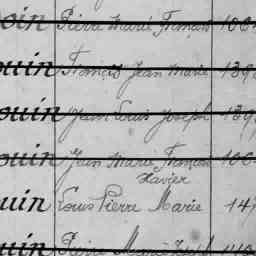 oin Pierre Marie François 100
ouin François Jean Marie 139
ouin Jean Louis Joseph 139
ouin Jean Marie François 100
Xavier
ouin Louis Pierre Marie 147
ouin Pierre Marie